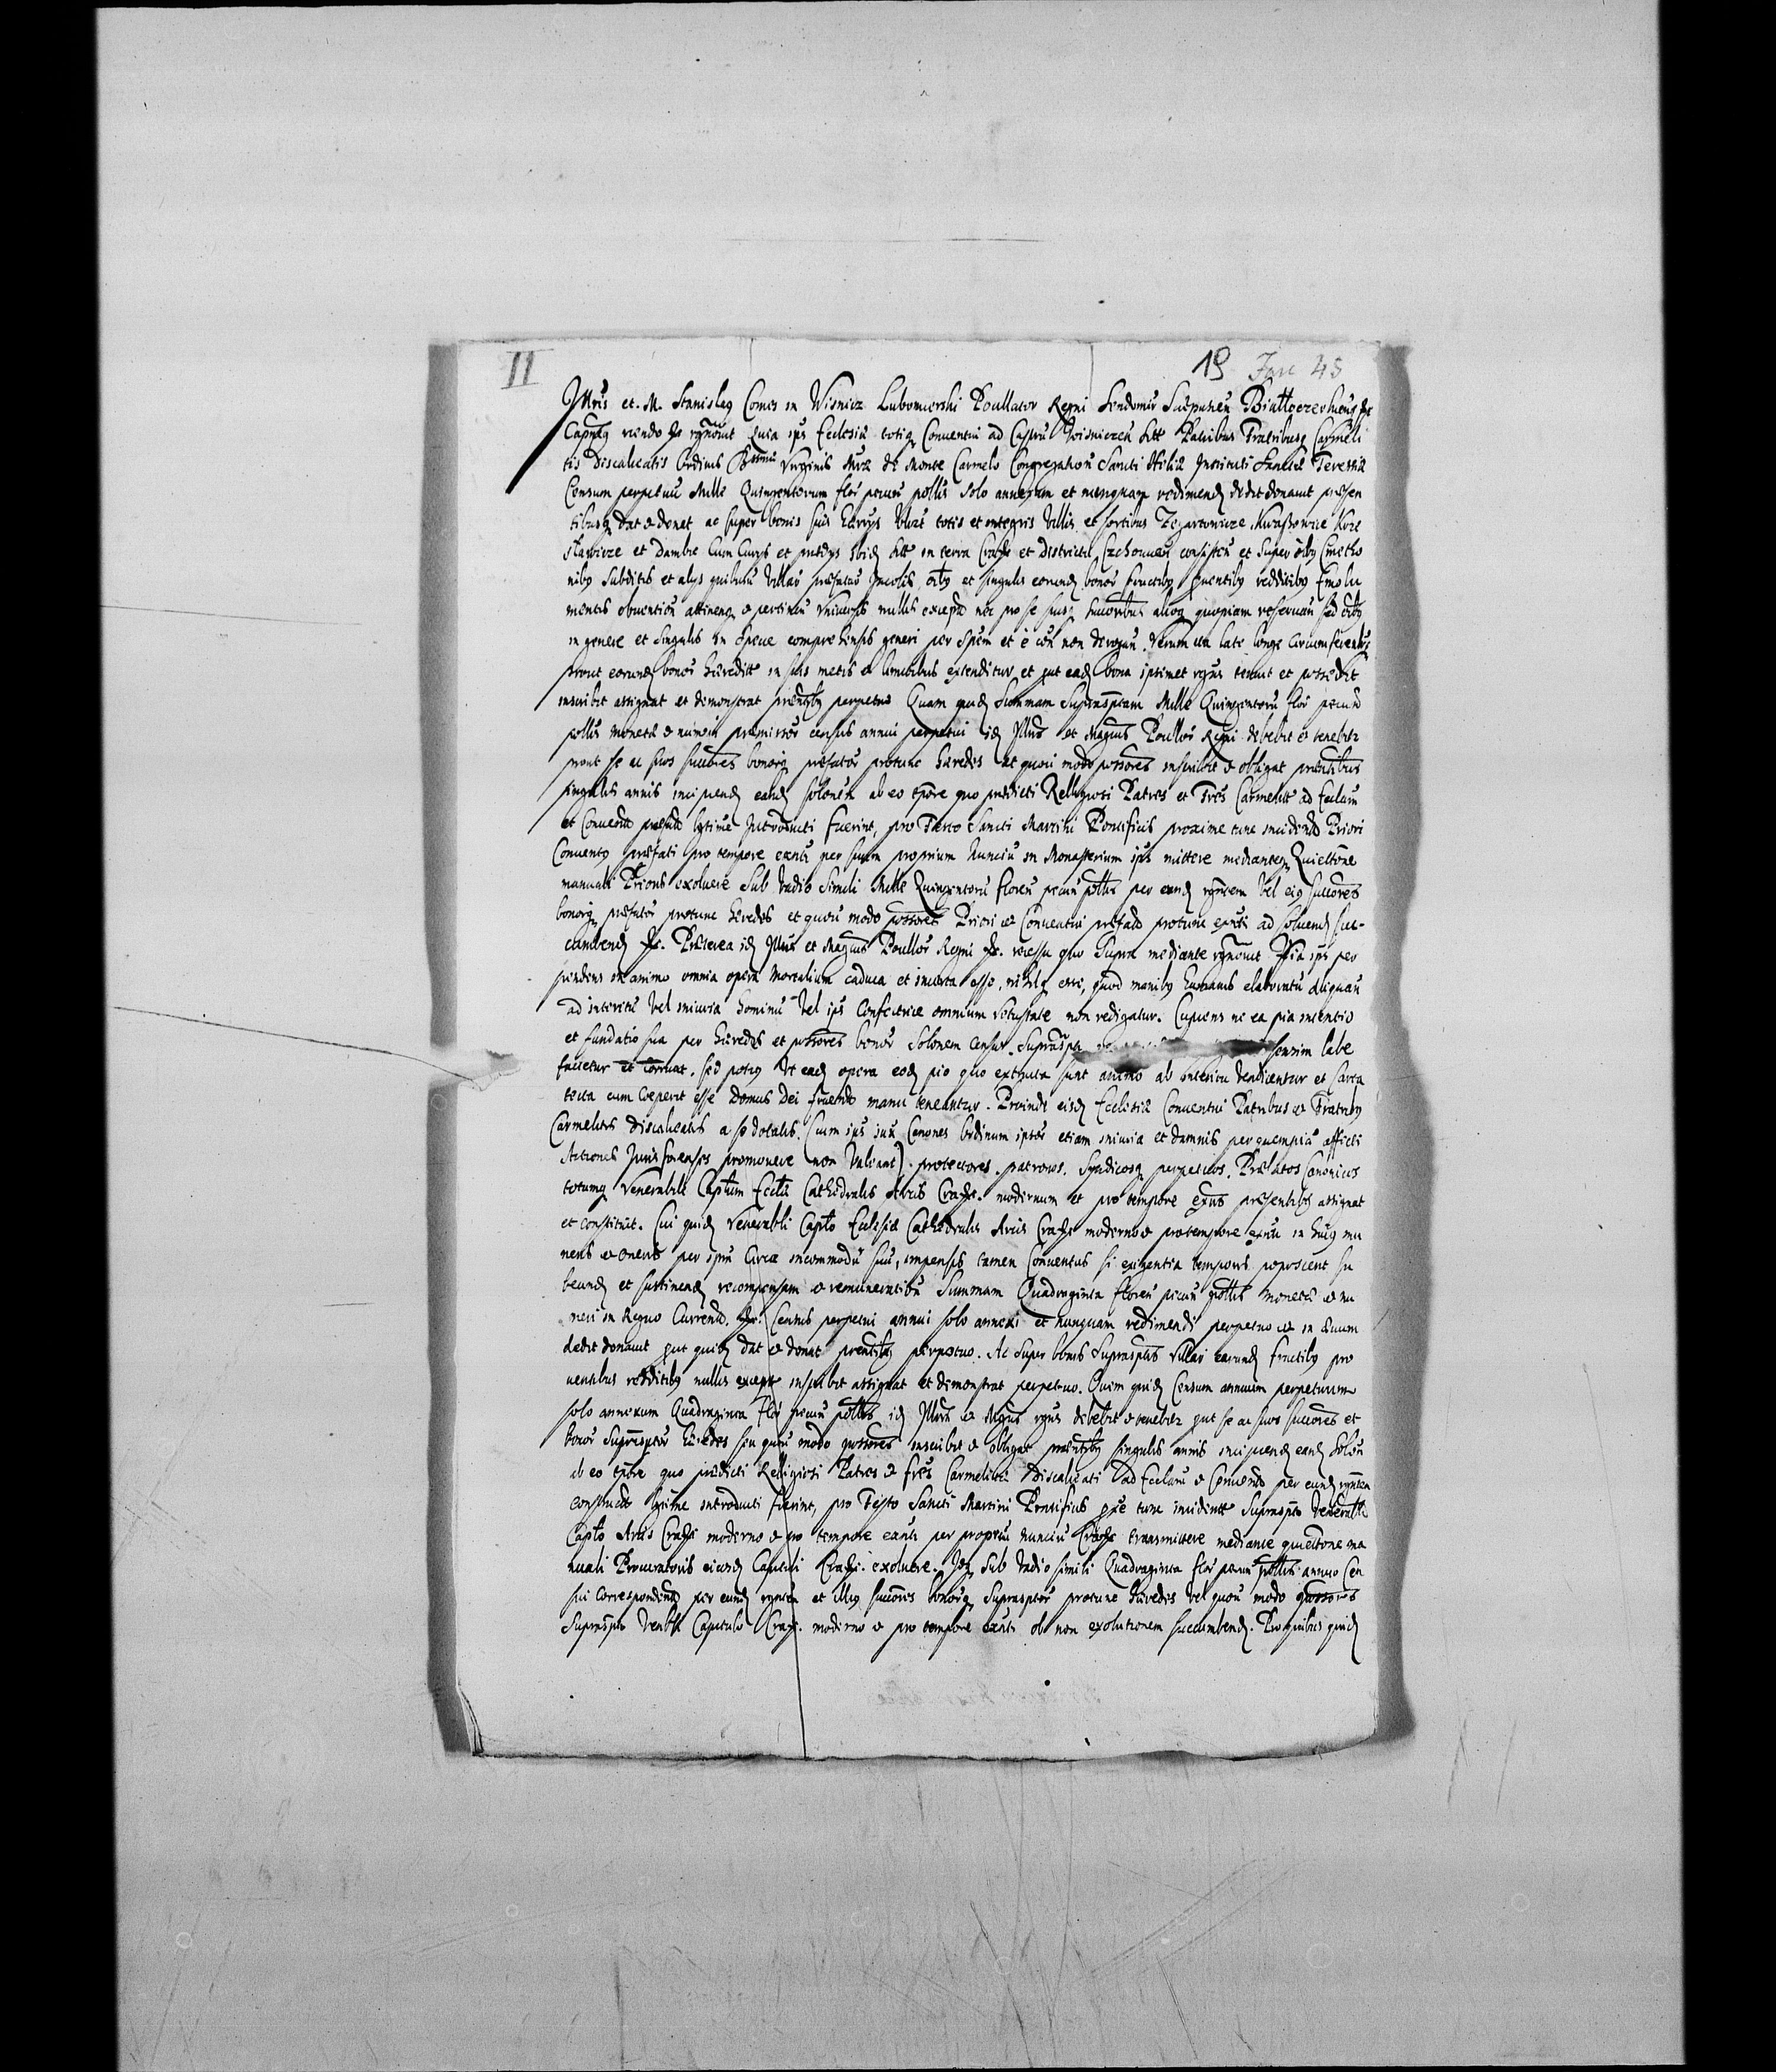 II
19 Jan 45
Illris et. M. Stanislaꝯ Comes in Wisnicz Lubomierski Pocillator Regni Sendomir Scepusien Biallocerkieuꝯ
Capneꝯ ruendo recognovit Quia ipse Ecclesiæ totiqꝫ Conventui ad Castrum Wisniczen Patribus Fratribusqꝫ Carmeli
tis Discalceatis Ordinis Virginis Mariæ de Monte Carmelo Congregationis Sancti Heliæ Instituti Sanctæ Teressiæ
Censum perpetuum Mille Quingentorum flor pecun pollis solo annexum et nunquam redimend dedit donavit præsen
tibusqꝫ dat et donat ac super bonis suis hærrijs totis et integris villis et sortibus Zegartowicze Kwaszowice
et Dambie Cum Curijs et prædijs ibid in terra Crac. et Districtu Czchovien consisten et super oibꝯ Cmetho
nibꝯ subditis et alijs quibusvis villar præfatar Incolis oibꝯ et singulis eorund bonor fructibꝯ proventibꝯ redditibꝯ Emolu
mentis obvention attinen et pertinen vniversis nullis exceptis nec pro se suisqꝫ succoribus alioqꝫ quopiam reservan sed oibꝯ
in genere et singulis in specie comprehensis generi per speciem et e con non derogan. Verum ita late longe circumferentijs
prout eorund bonor hæredit in suis metis et limitibus extenditur et put ead bona ipsimet tenuit et possedit
inscribit assignat et demonstrat præntibꝯ perpetuo Quam quid Summam Suprascriptam Mille Quingentoru flor pecun
pollis monetæ et numeri præmissor census annui perpetui id Illris et Magcus Pocillr Regni debebit et tenebitr
prout se ac suos succores bonorqꝫ præfator protunc hæredes ac quovis modo possores inscribit et obligat præntibus
singulis annis incipiend eand solonem ab eo tpre quo prædicti Relligiosi Patres et Fres Carmelitæ ad Ecclam
et Conventum præfatum lgtime Introducti fuerint, pro Festo Sancti Martini Pontificis proxime tunc incidend Priori
Conventꝯ præfati pro tempore exnti per suum proprium Nunciu in Monasterium ips mittere medianteqꝫ Quiettone
manuali Prioris exolvere Sub vadio simili Mille Quingentoru floren pecun pollis per eand vel eiꝯ succores
bonorqꝫ præfator protunc hæredes et quovis modo possores Priori et Conventui præfato protunc exnti ad solvend suc-
cumbend. Præterea id Illris et Magcus Pocillr Regni recessu quo supra mediante recognovit Quia ips per
pendens in animo omnia opera Mortalium caduca et incerta esse, nihilqꝫ esse, quod manibꝯ humanis elaboratu aliquan
ad interitu vel iniuria hominu vel ips Confectrice omnium vetustate non redigatur. Cupiens ne ea pia intentio
et fundatio sua per hæredes et possores bonor solonem Census Suprascpti sensim labe
factetur et corruat. sed potiꝯ vt ead opera eod pio quo extructa sunt animo ab interitu vendicentur et sarta
tecta cum coeperit esse Domus Dei manu teneantur. Proinde eisd Ecclesiæ Conventui Patribus et Fratribꝯ
Carmelitis Discalceatis a se dotatis. Cum ips iux Canones Ordinum ipsor etiam iniuria et damnis per quempia affecti
Actiones Juris forenses promovere non valeant) protectores. patronos. Syndicosqꝫ perpetuos. Prælatos Canonicos
totumqꝫ Venerabile Captum Ecclæ Cathedralis Arcis Crac. modernum et pro tempore exns præsentibꝯ assignat
et constituit. Cui quid Venerabli Capto Ecclesiæ Cathedralis Arcis Crac. moderno et pro tempore exnti in huiꝯ mu
neris et oneris per ipsum Citra incommodu suu, impensis tamen Conventus si exigentia temporis poposcerit su
beund et sustinend recompensam et remunerationem Summam Quadraginta floren pecun pollis monetæ et nu
meri in Regno Currentis. Census perpetui annui solo annexi et nunquam redimendi perpetuo et in ævum
dedit donavit put quid dat et donat præntibꝯ perpetuo. Ac super bonis Suprascptis villar earund fructibꝯ pro
ventibus redditibꝯ nullis except inscribit assignat et demonstrat perpetuo. Quem quid Censum annuum perpetuum
solo annexum Quadraginta flor pecun pollis id Illris et Magcus debebit et tenebitr put se ac suos succores et
bonor Suprascptor hæredes seu quovis modo possores inscribit et obligat præntibꝯ singulis annis incipiend eand solon
ab eo tpre quo prædicti Relligiosi Patres et fres Carmelitæ Discalceati ad Ecclam et Conventum per eund
constructo lgtime introducti fuerint, pro Festo Sancti Martini Pontificis pxe tunc incidente Suprascpto Venerabli
Capto Arcis Crac. moderno et pro tempore exnti per propriu nunciu Crac. transmittere mediante quiettone ma
nuali Procuratoris eiusd Capituli Crac. exolvere. Idqꝫ sub vadio simili Quadraginta flor pecun pollis annuo Cen
sui Correspondend per eund et illiꝯ succores bonorqꝫ Suprascptor protunc hæredes vel quovis modo possores
Suprascpto Venbli Capitulo Crac. moderno et pro tempore exnti ob non exolutionem succumbend. Pro quibus quid